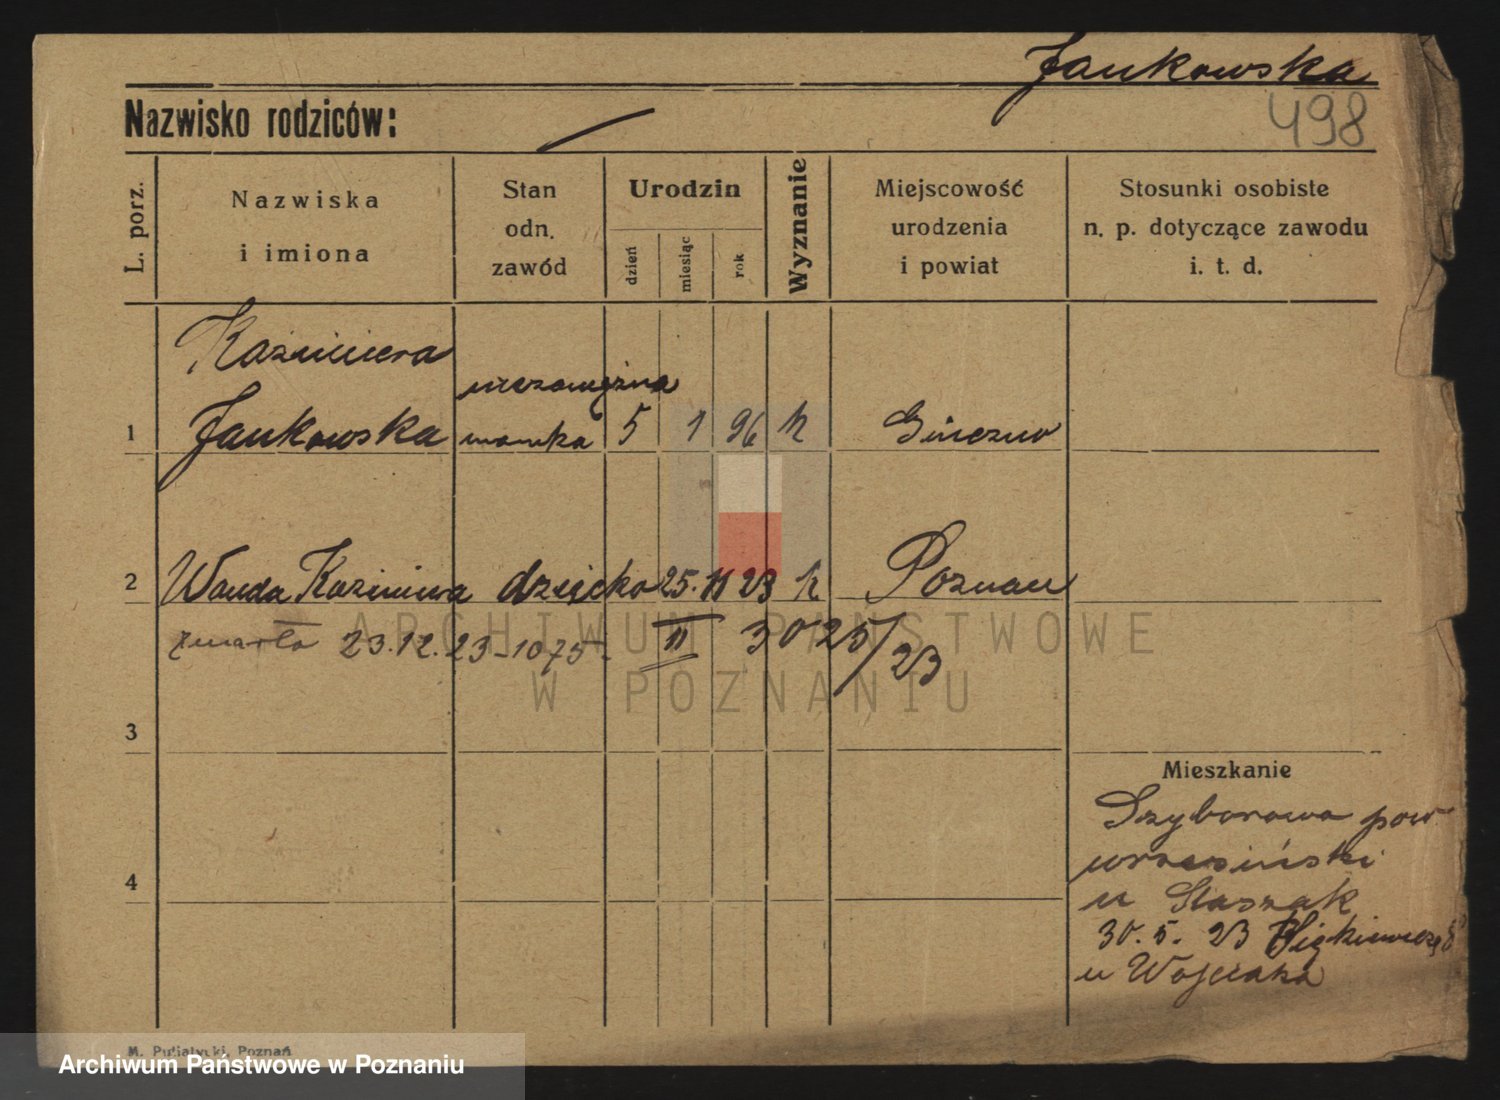 Jankowska
498
Nazwisko rodziców:
L. porz.
Nazwiska
i imiona
Stan
odn.
zawód
Urodzin
dzień
miesiąc
rok
Wyznanie
Miejscowość
urodzenia
i powiat
Stosunki osobiste
n. p. dotyczące zawodu
i. t. d.
Kazimiera
niezamężna
1 Jankowska mamka 5 1 96 k Gniezno
2 Wanda Kazimiera dziecko 25. 11 23 k Poznan
zmarła 23.12.23-1075. II 3025/23
3
Mieszkanie
Szyborowa pow
wrzesiński
4
u Staszak
30. 5. 23
u Wojciaka
ARCHIWUM PAŃSTWOWE
W POZNANIU
M. Putiatycki, Poznań
Archiwum Państwowe w Poznaniu